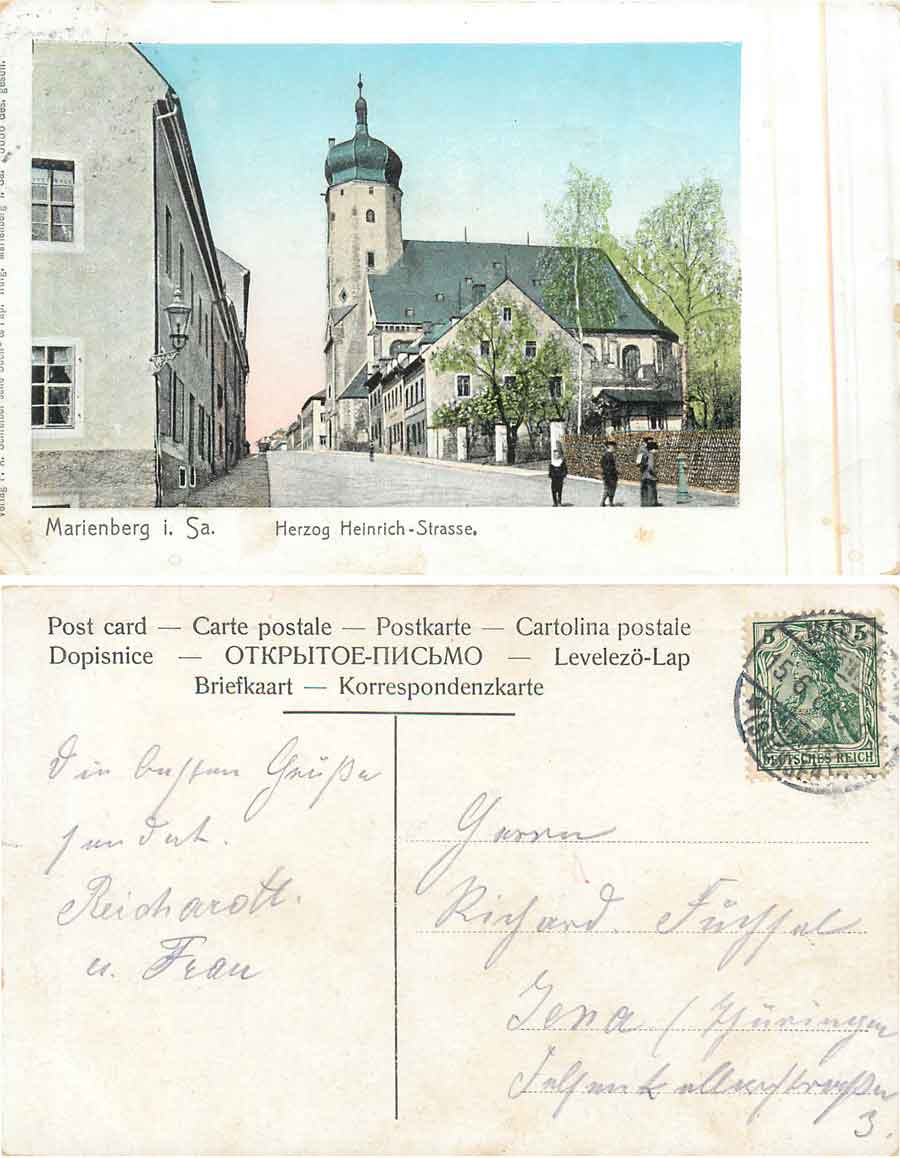 Marienberg i. Sa. Herzog Heinrich-Strasse.
Post card — Carte postale — Postkarte — Cartolina postale
Dopisnice — ОТКРЫТОЕ-ПИСЬМО — Levelezö-Lap
Briefkaart — Korrespondenzkarte
5 5
DEUTSCHES REICH
Die besten Grüße
sendet.
Reichardt.
u. Frau
Herrn
Richard. Füchsel
Jena (Thüringen
Felsenkellerstraße
3.